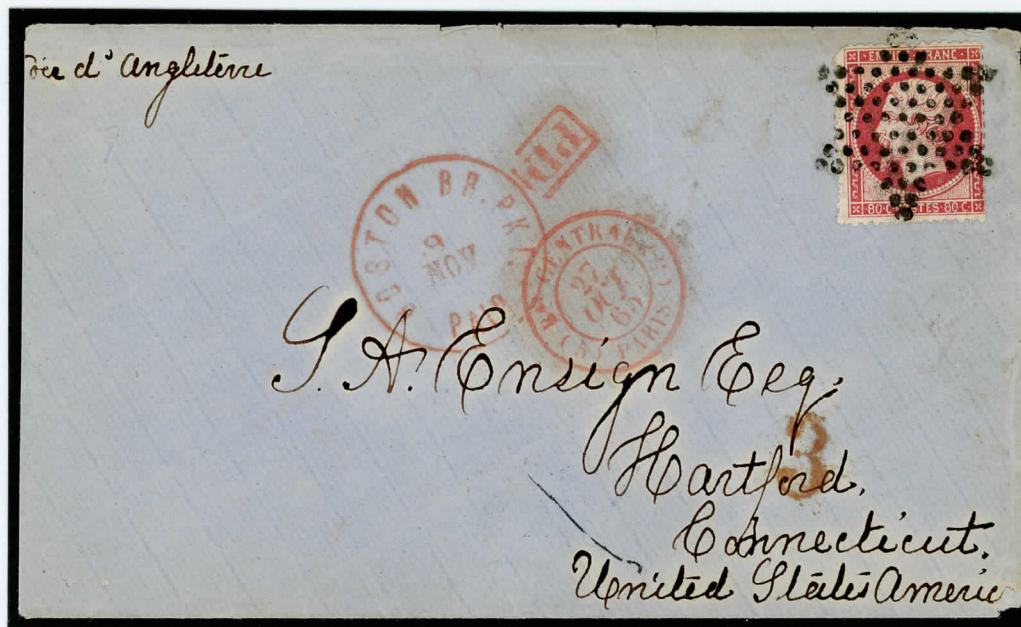 voie d'Angleterre
EMPIRE FRANC
80 C POSTES 80 C
PD
BOSTON BR. PKT
9
NOV
PAID
Bau CENTRAL
27
OCT
65
(S) PARIS
S. A. Ensign Esq.
3
Hartford,
Connecticut.
United States America